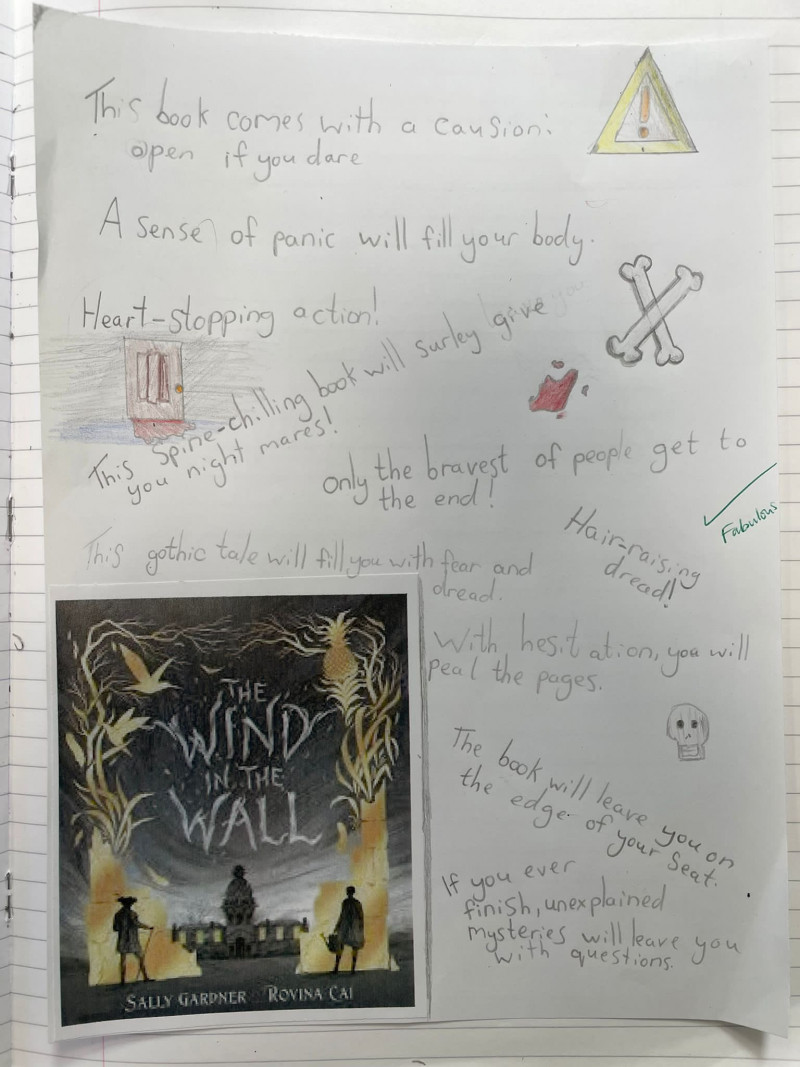 This book comes with a causion:
open if you dare
A sense of panic will fill your body.
Heart-stopping action!
This spine-chilling book will surley give
you night mares!
only the bravest of people get to
the end!
Fabulous
Hair-raising
dread!
This gothic tale will fill you with fear and
dread.
With hesitation, you will
peal the pages.
THE
WIND
IN THE
WALL
The book will leave you on
the edge of your seat.
If you ever
finish, unexplained
mysteries will leave you
with questions.
SALLY GARDNER ROVINA CAI